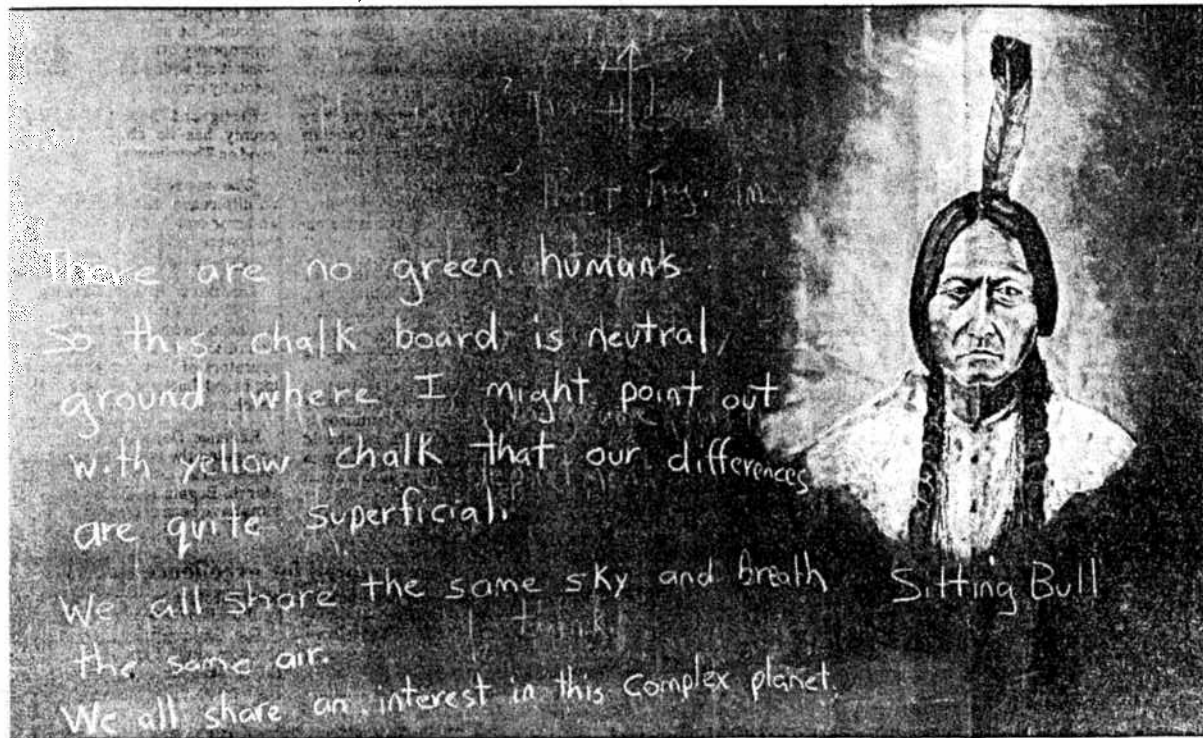 There are no green humans
So this chalk board is neutral
ground where I might point out
with yellow chalk that our differences
are quite superficial.
We all share the same sky and breath
the same air.
We all share an interest in this complex planet.
Sitting Bull